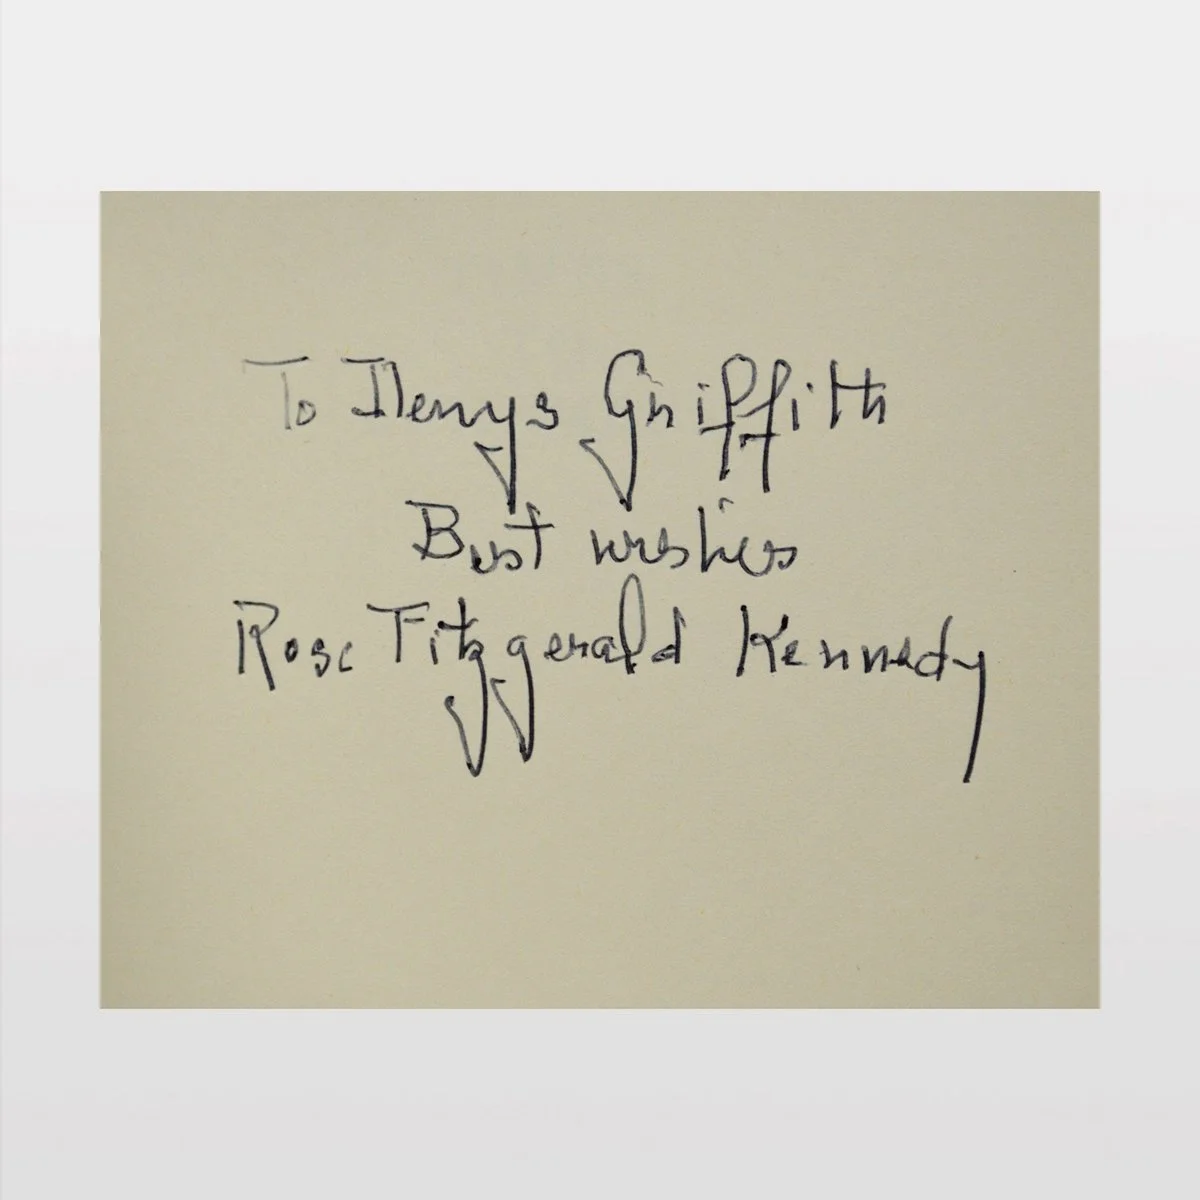 To Denys Griffith
Best wishes
Rose Fitzgerald Kennedy